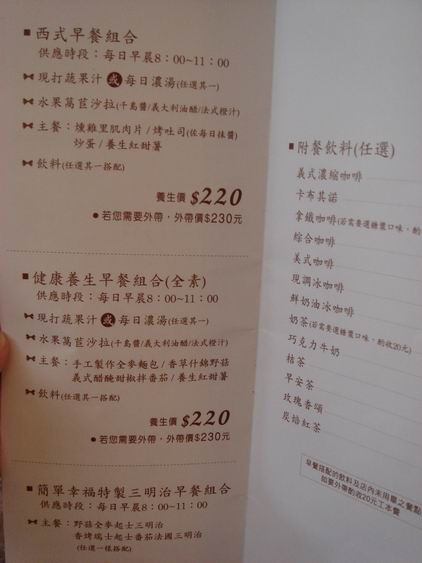 ■ 西式早餐組合
供應時段：每日早晨8：00~11：00
現打蔬果汁 或 每日濃湯(任選其一)
水果萵苣沙拉(千島醬/義大利油醋/法式橙汁)
主餐：燻雞里肌肉片/烤吐司(佐每日抹醬)
炒蛋/養生紅甜薯
飲料(任選其一搭配)
養生價 $220
● 若您需要外帶，外帶價$230元
■ 健康養生早餐組合(全素)
供應時段：每日早晨8：00~11：00
現打蔬果汁 或 每日濃湯(任選其一)
水果萵苣沙拉(千島醬/義大利油醋/法式橙汁)
主餐：手工製作全麥麵包/香草什錦野菇
義式醋醃甜椒拌番茄/養生紅甜薯
飲料(任選其一搭配)
養生價 $220
● 若您需要外帶，外帶價$230元
■ 簡單幸福特製三明治早餐組合
供應時段：每日早晨8：00~11：00
主餐：野菇全麥起士三明治
香烤瑞士起士番茄法國三明治
(任選一樣搭配)
■ 附餐飲料(任選)
義式濃縮咖啡
卡布其諾
拿鐵咖啡(若需要選糖漿口味，酌
綜合咖啡
美式咖啡
現調冰咖啡
鮮奶油冰咖啡
奶茶(若需要選糖漿口味，酌收20元)
巧克力牛奶
桔茶
早安茶
玫瑰香頌
炭焙紅茶
早餐搭配的飲料及店內未用罄之餐點
如要外帶酌收20元工本費